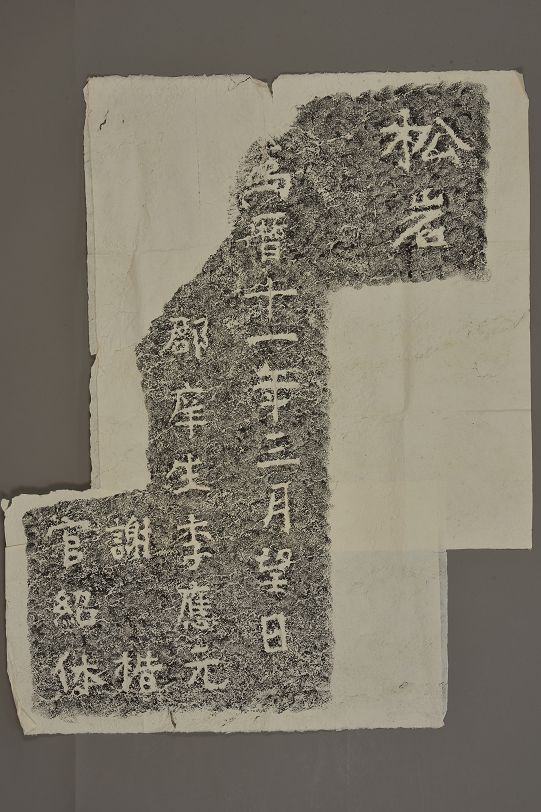 松岩
萬曆十一年三月望日
郡庠生李應元
謝楷
官紹休